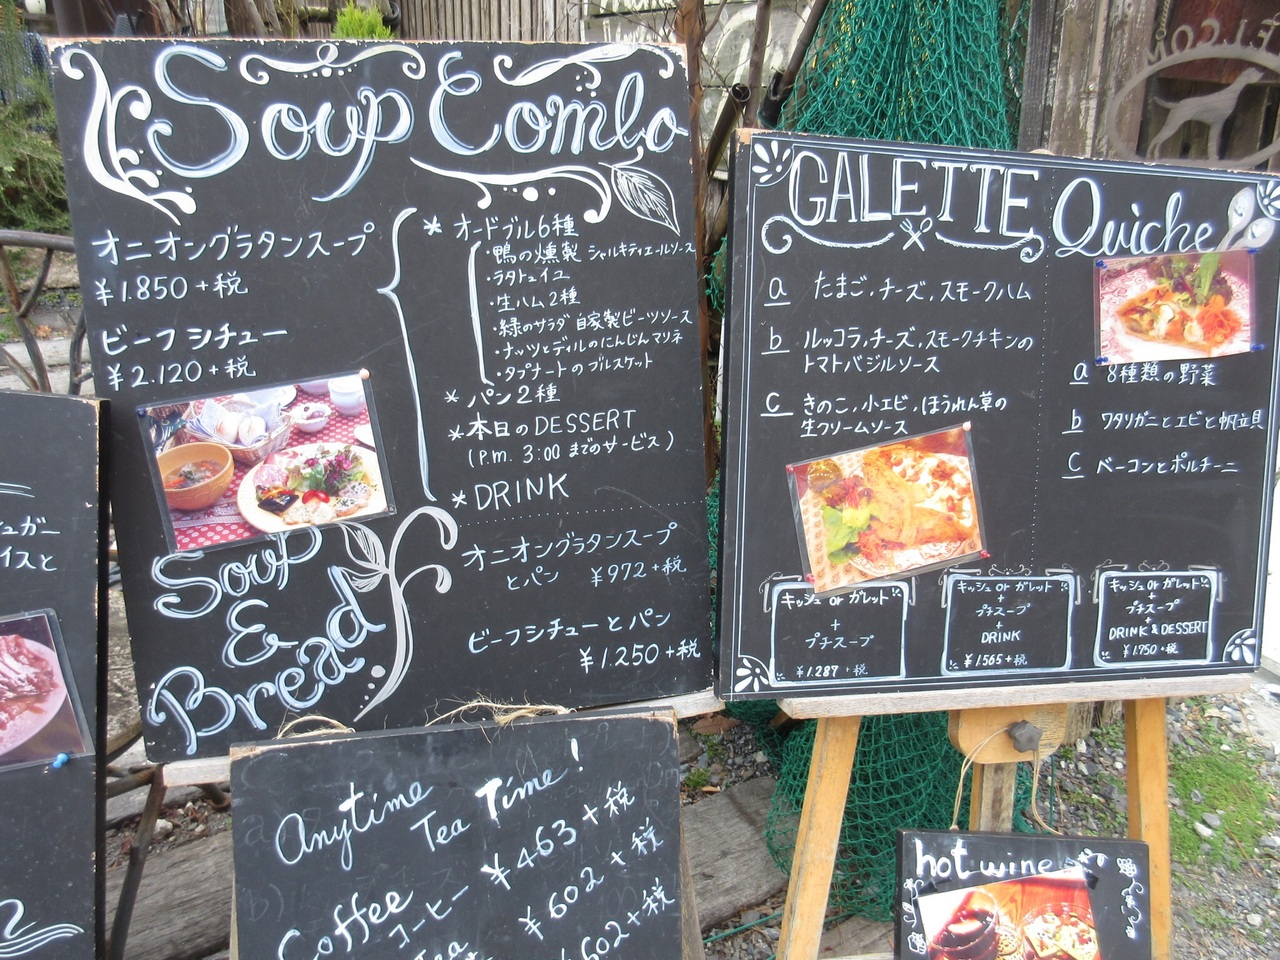 Soup Combo
オニオングラタンスープ
¥1.850+税
ビーフシチュー
¥2.120+税
* オードブル6種
・鴨の燻製 シャルキティエールソース
・ラタトゥイユ
・生ハム2種
・緑のサラダ 自家製ビーツソース
・ナッツとディルのにんじんマリネ
・タプナードのブルスケット
* パン2種
* 本日のDESSERT
(P.m. 3:00までのサービス)
* DRINK
Soup
&
Bread
オニオングラタンスープ
とパン ¥972+税
ビーフシチューとパン
¥1.250+税
GALETTE
a たまご,チーズ,スモークハム
b ルッコラ,チーズ,スモークチキンの
トマトバジルソース
c きのこ,小エビ,ほうれん草の
生クリームソース
Quiche
a 8種類の野菜
b ワタリガニとエビと帆立貝
c ベーコンとポルチーニ
キッシュorガレット
+
プチスープ
¥1.287+税
キッシュorガレット
+
プチスープ
+
DRINK
¥1.565+税
キッシュorガレット
+
プチスープ
+
DRINK & DESSERT
¥1.950+税
Anytime
Tea Time!
¥463+税
Coffee
コーヒー
¥602+税
Tea
602+税
hot wine